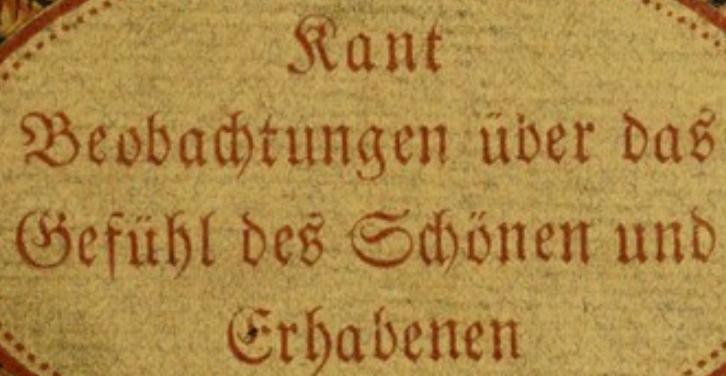 Kant
Beobachtungen über das
Gefühl des Schönen und
Erhabenen